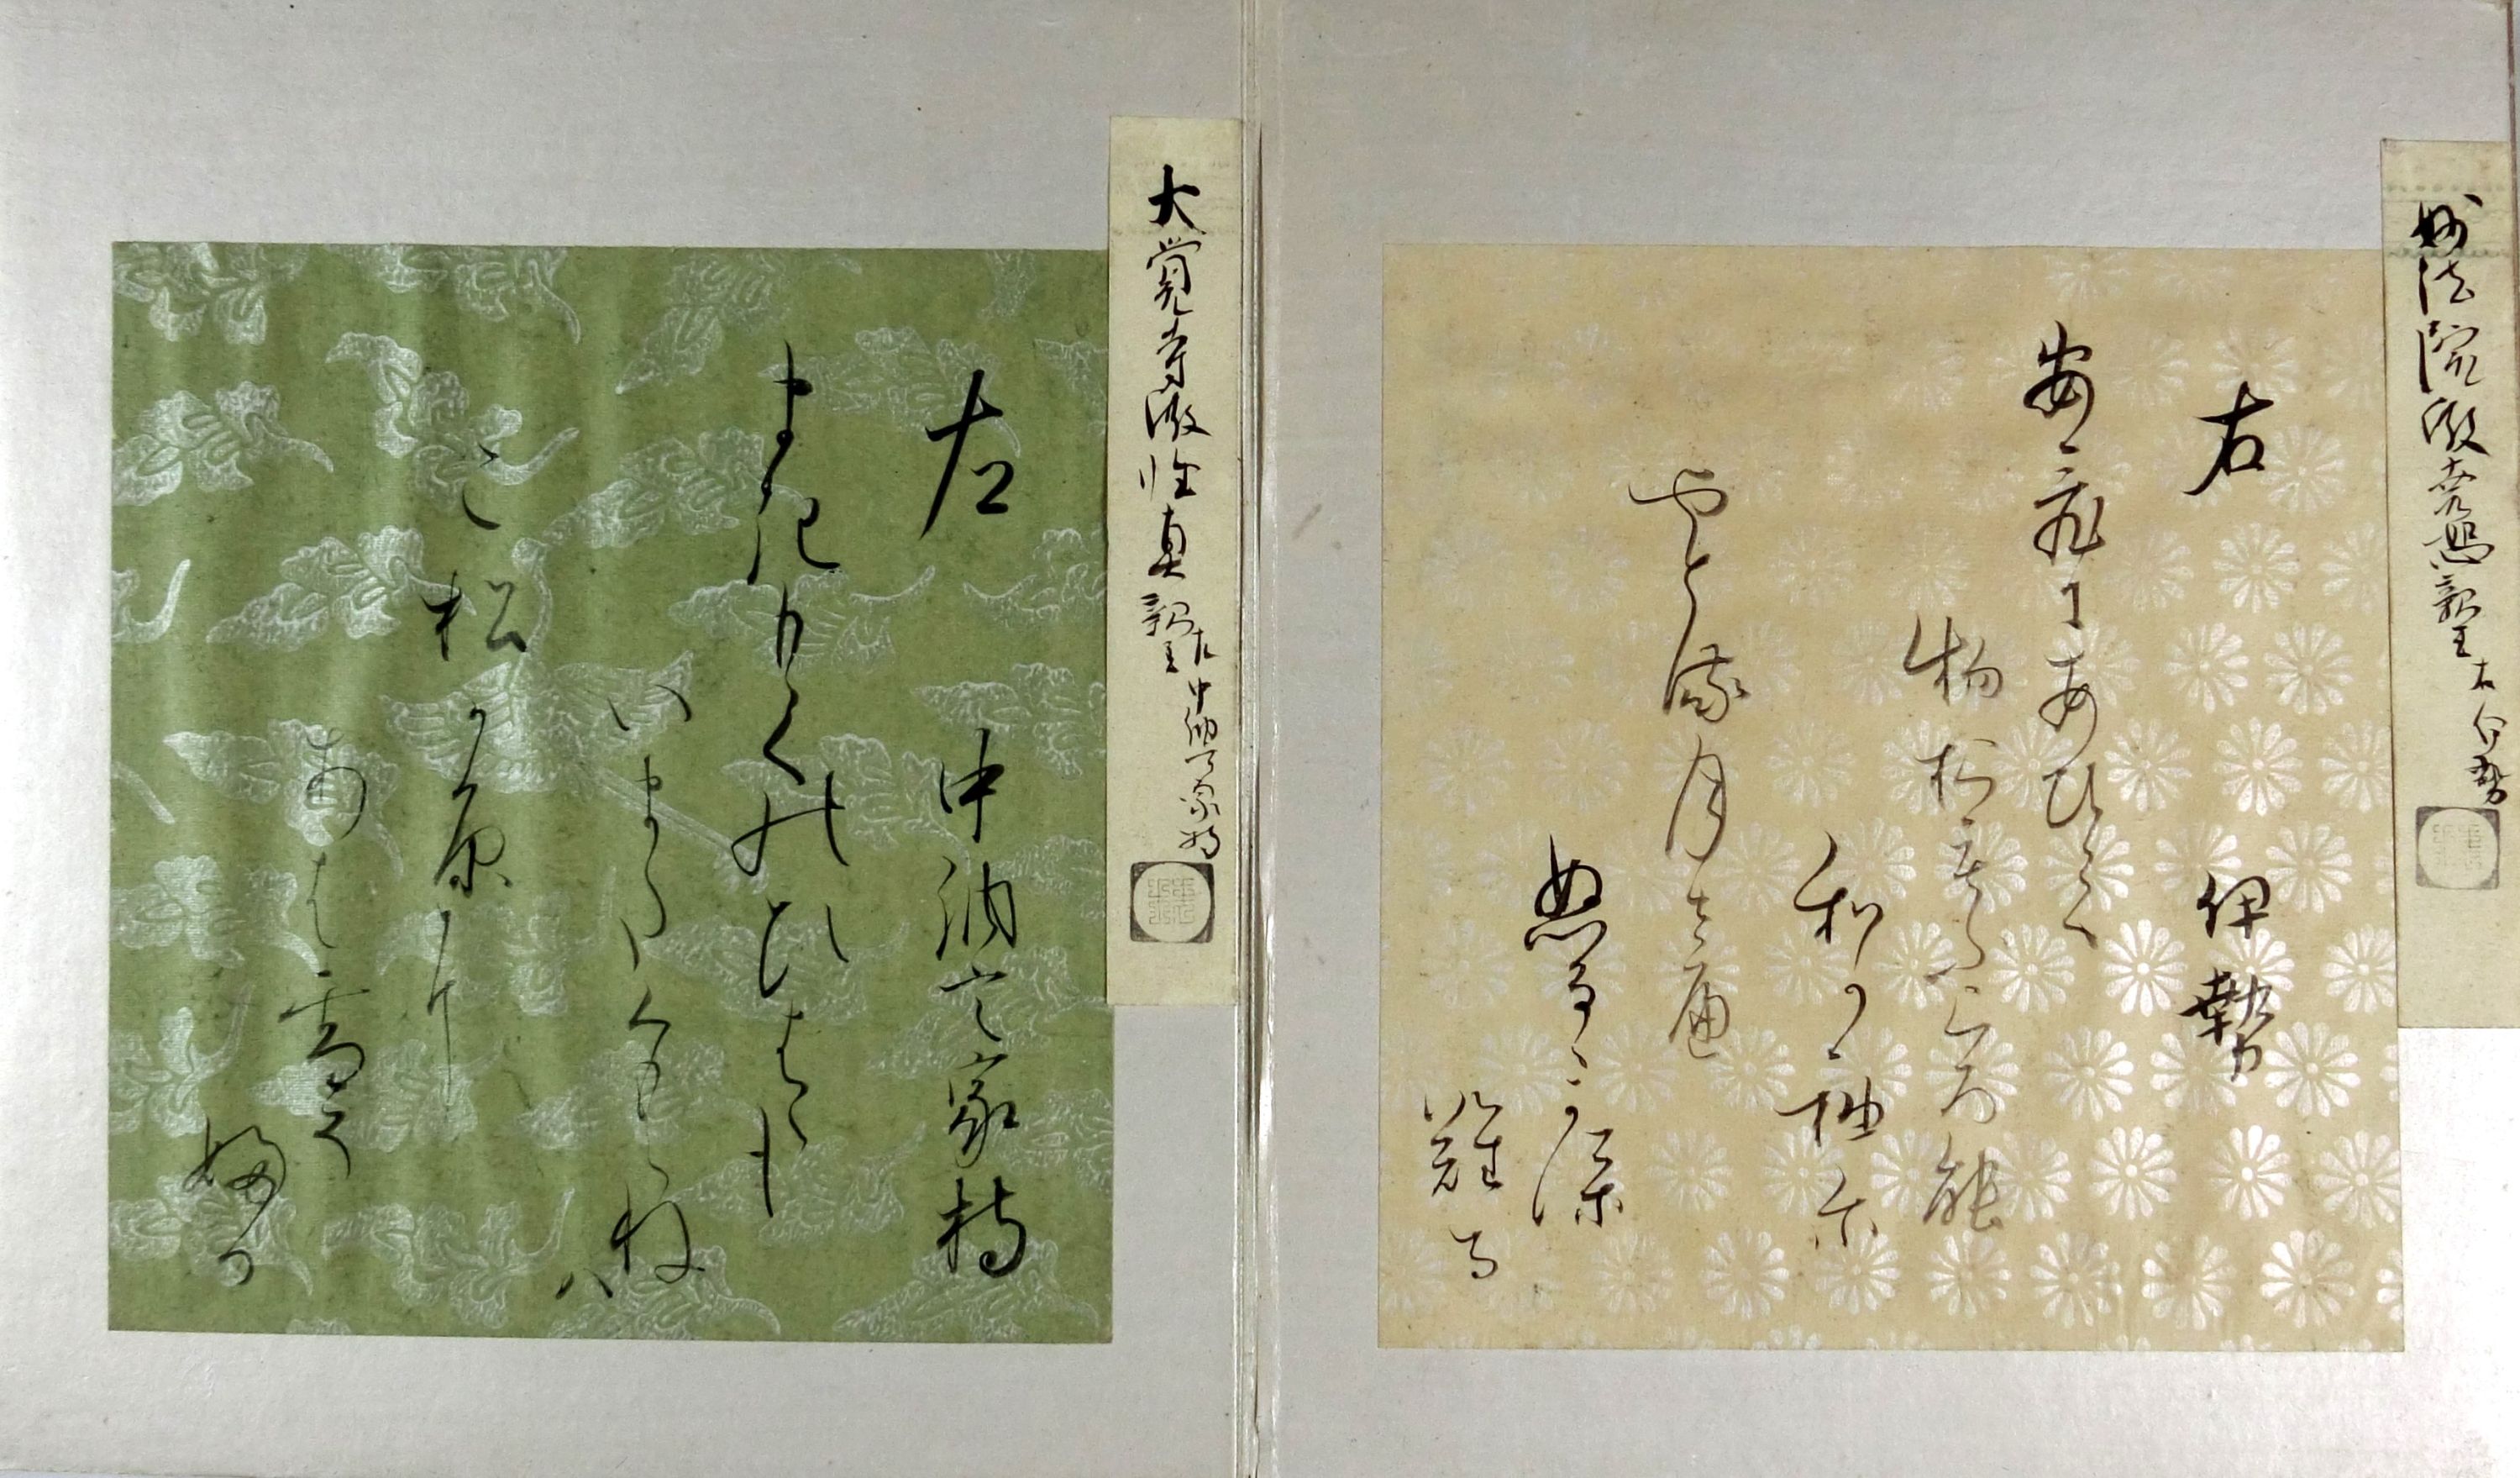 妙法院殿堯恕親王 右 伊勢
右 伊勢
あひにあひて
物おもふころの
わか袖に
やとる月さへ
ぬるゝかほ
なる
大覚寺殿性真親王 左 中納言家持
左 中納言家持
まきもくのひはらも
いまたくもらね
は
こ松か原に
あは雪そ
ふる